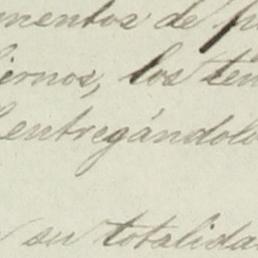 mentos de p
iernos, los ten
entregándolo
su totalida